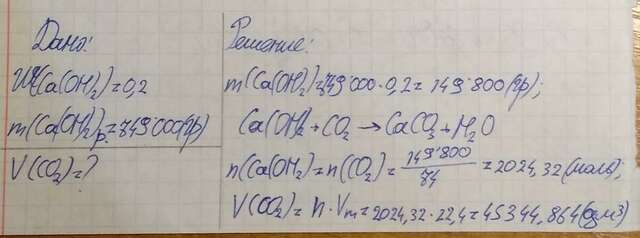 Дано:
W(Ca(OH)₂)=0,2
m(Ca(OH)₂)р.=749000(гр)
V(CO₂)=?
Решение:
m(Ca(OH)₂)=749000·0,2=149'800(гр);
Ca(OH)₂+CO₂→CaCO₃+H₂O
n(Ca(OH)₂)=n(CO₂)=149'800/74=2024,32(моль);
V(CO₂)=n·Vm=2024,32·22,4=45344,864(дм³)